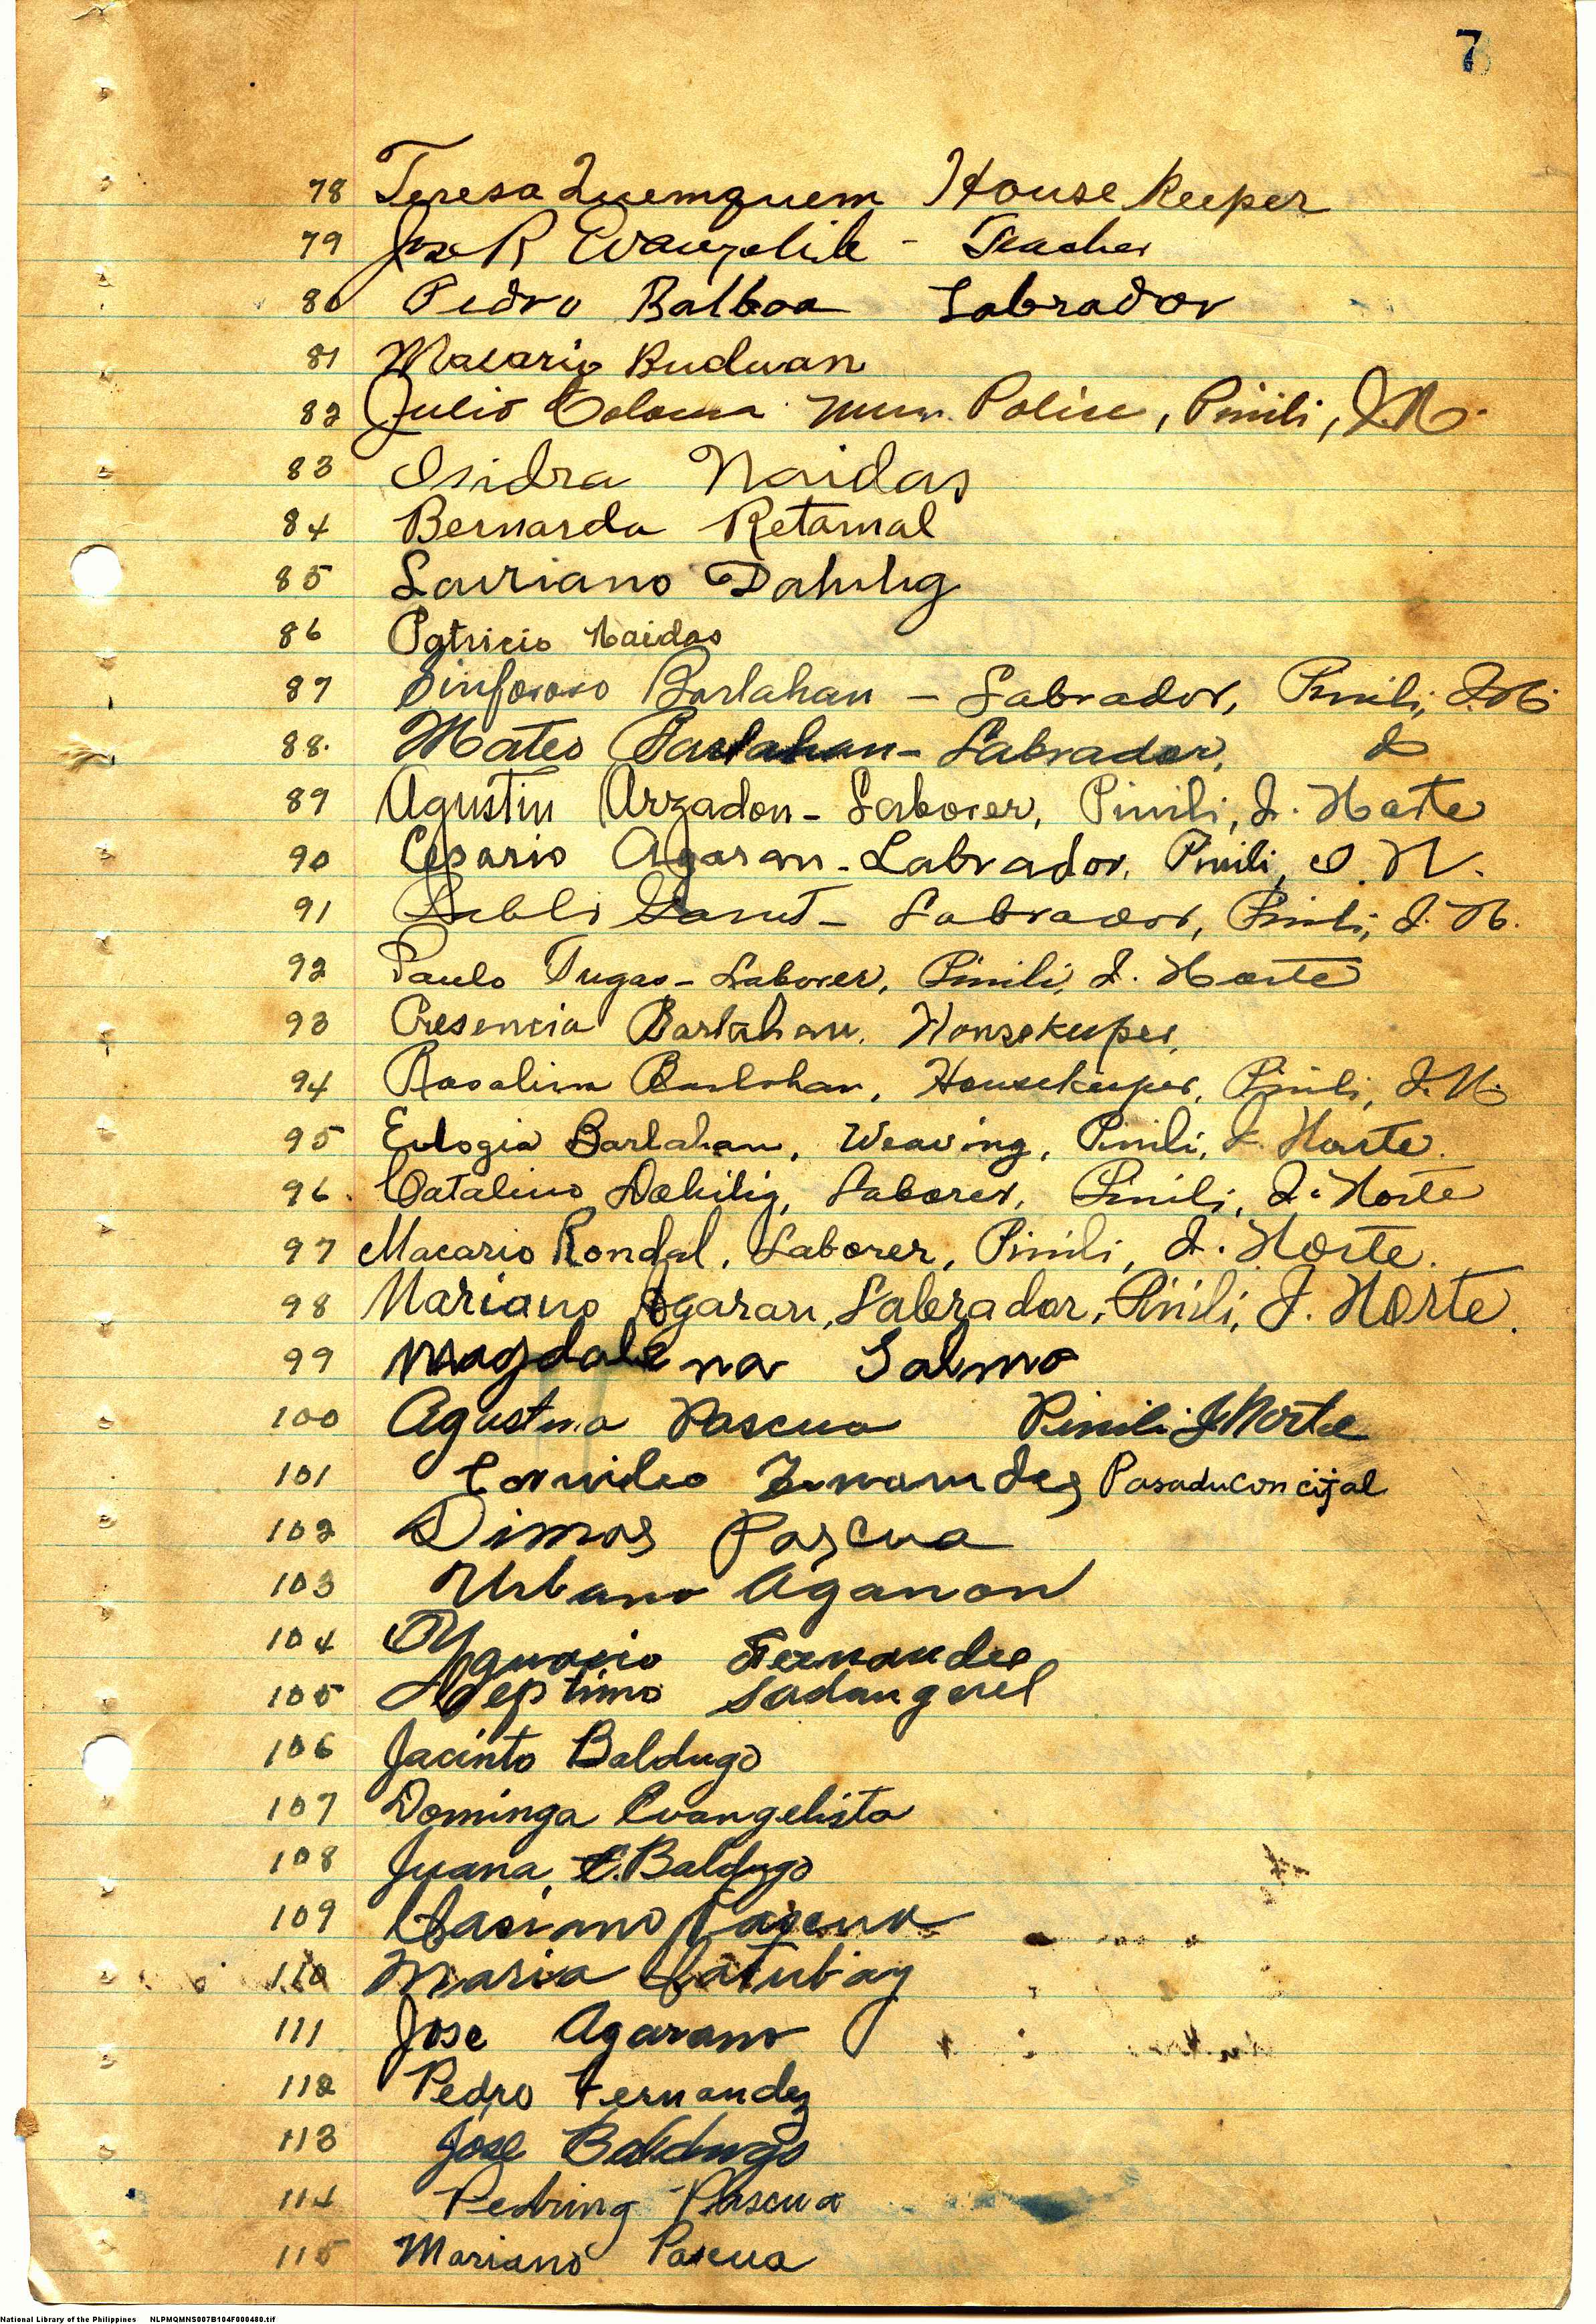 7
78 Teresa Quemquem House Keeper
79 Jose R Evangelista - Teacher
80 Pedro Balboa Labrador
81 Macario Buduan
82 Julio Coloma Mun. Police, Pinili, I.N.
83 Isidra Naidas
84 Bernarda Retamal
85 Lauriano Dahilig
86 Patricio Naidas
87 Sinforoso Barlahan - Labrador, Pinili, I.N.
88. Mateo Barlahan - Labrador,
89 Agustin Arzadon - Laborer, Pinili, I. Norte
90 Cesario Agaran - Labrador, Pinili, I. N.
91 Labrador, Pinili, I. N.
92 Paulo Tugas - Laborer, Pinili, I. Norte
93 Cresencia Barlahan, Housekeeper,
94 Rosalina Barlahan, Housekeeper, Pinili, I. N.
95 Eulogia Barlahan, Weaving, Pinili, I. Norte.
96. Catalino Dahilig, Laborer, Pinili, I. Norte
97 Macario Rondal, Laborer, Pinili, I. Norte.
98 Mariano Agaran, Labrador, Pinili, I. Norte.
99 Magdalena Salmo
100 Agustina Pascua Pinili I Norte
101 Pasadu concijal
102 Dimas Pascua
103 Urbano Aganon
104 Ygnacio Fernandez
105 Septimo
106 Jacinto Baldugo
107 Dominga Evangelista
108 Juana, E. Baldugo
109 Casimiro Pascua
110 Maria Catubay
111 Jose Agarano
112 Pedro Fernandez
113 Jose Baldugo
114 Pedring Pascua
115 Mariano Pascua
National Library of the Philippines NLPMQMNS007B104F000480.tif